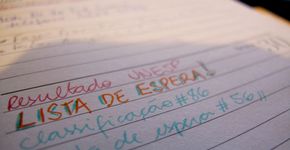 Resultado UNESP
LISTA DE ESPERA!
classificação #86
de espera #56